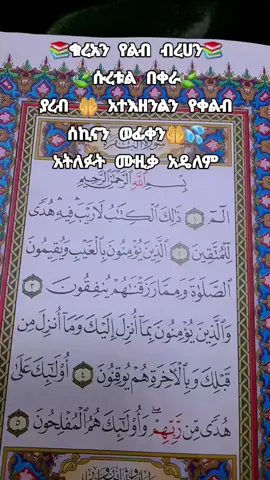 📚ቁረአን የልብ ብረሀን📚
🌿ሱረቱል በቀራ🌿
ያረብ 🤲 አተእዘንልን የቀልብ
ሰኪናን ወፈቀን🤲💦
አትለፉት ሙዚቃ አዴለም
بِسْمِ ٱللَّهِ ٱلرَّحْمَٰنِ ٱلرَّحِيمِ
الٓمٓ ١ ذَٰلِكَ ٱلْكِتَٰبُ لَا رَيْبَ ۛ فِيهِ ۛ هُدًى
لِّلْمُتَّقِينَ ٢ ٱلَّذِينَ يُؤْمِنُونَ بِٱلْغَيْبِ وَيُقِيمُونَ
ٱلصَّلَوٰةَ وَمِمَّا رَزَقْنَٰهُمْ يُنفِقُونَ ٣
وَٱلَّذِينَ يُؤْمِنُونَ بِمَآ أُنزِلَ إِلَيْكَ وَمَآ أُنزِلَ مِن
قَبْلِكَ وَبِٱلْءَاخِرَةِ هُمْ يُوقِنُونَ ٤ أُو۟لَٰٓئِكَ عَلَىٰ
هُدًى مِّن رَّبِّهِمْ ۖ وَأُو۟لَٰٓئِكَ هُمُ ٱلْمُفْلِحُونَ ٥